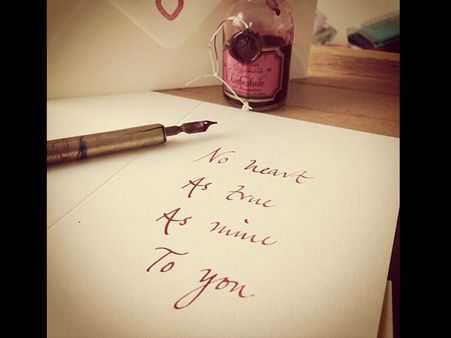 No heart
As true
As mine
To you